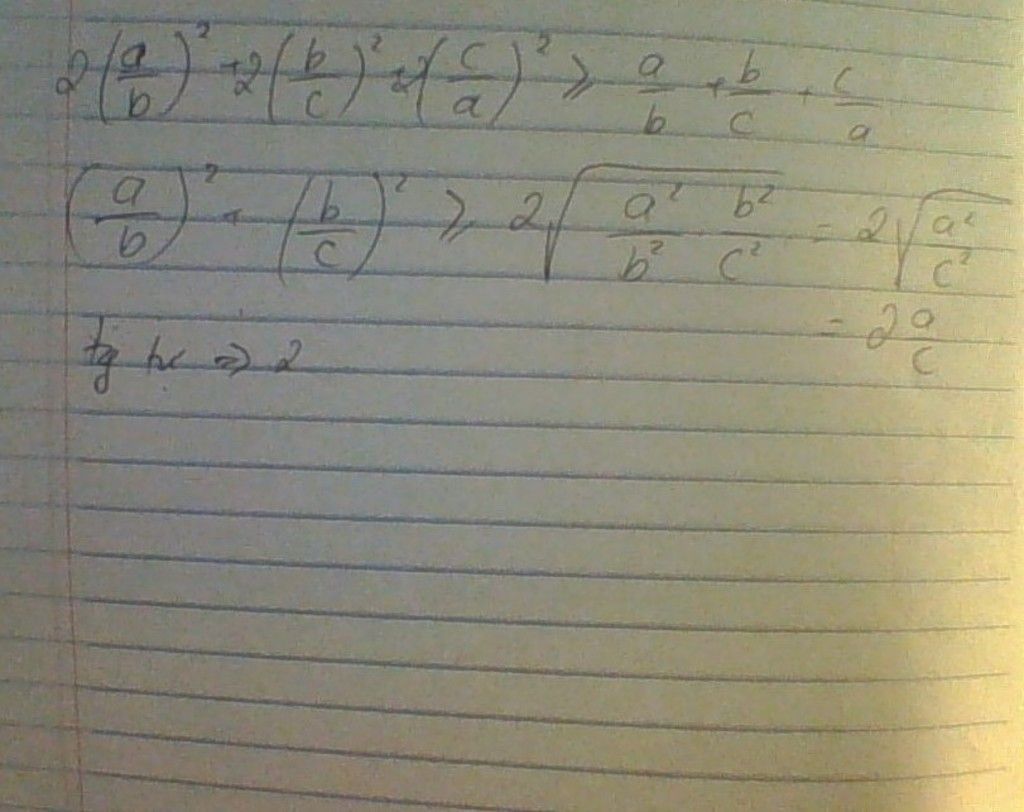 2(a/b)² + 2(b/c)² + 2(c/a)² ⩾ a/b + b/c + c/a
(a/b)² + (b/c)² ⩾ 2√(a²/b² · b²/c²) = 2√(a²/c²)
= 2 a/c
tg ⇒ 2